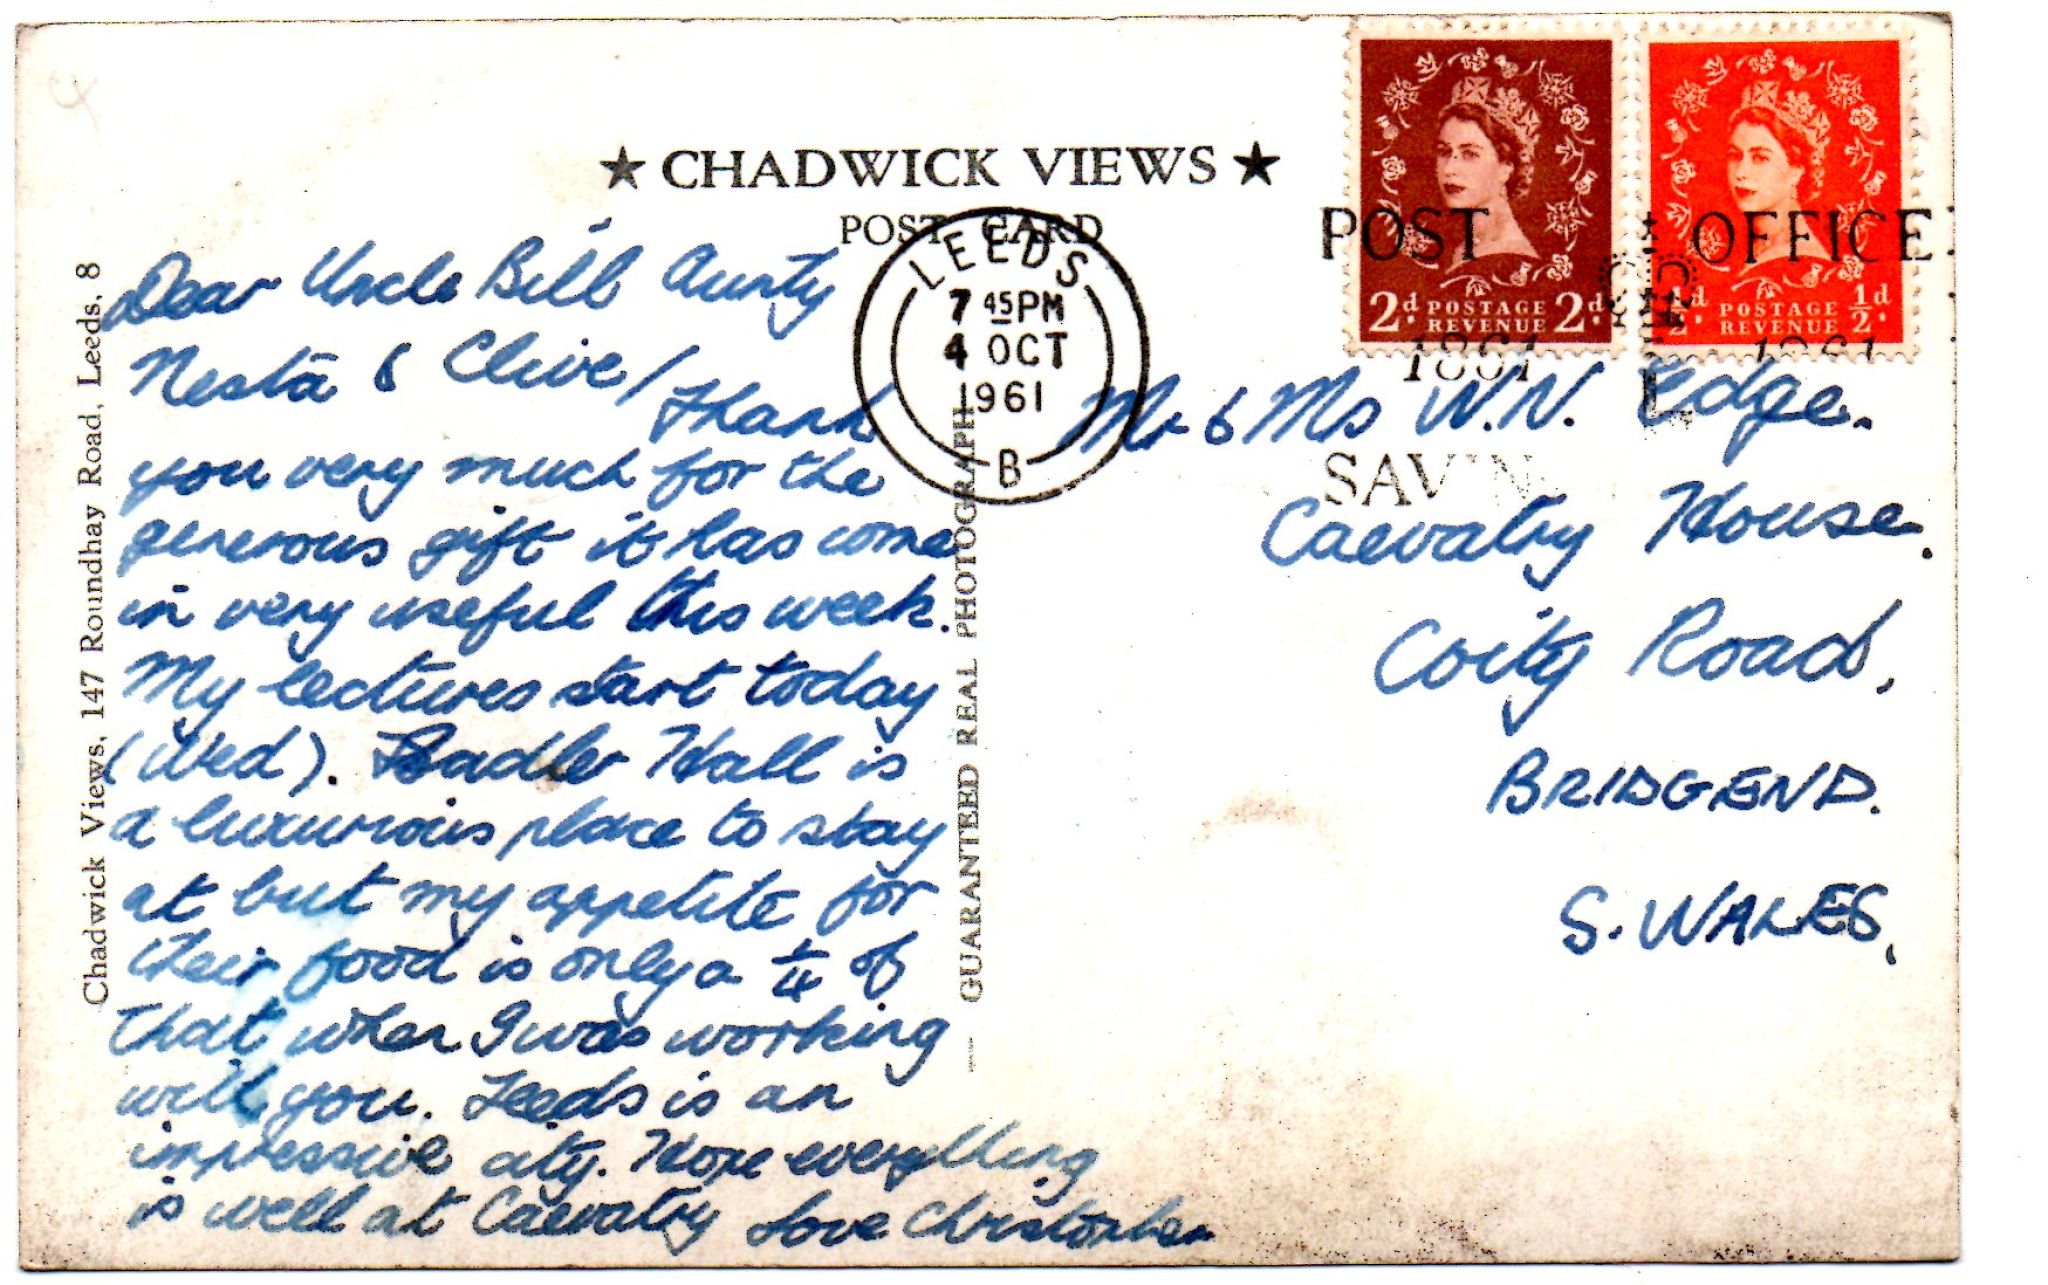 ★ CHADWICK VIEWS ★
POST CARD
Chadwick Views, 147 Roundhay Road, Leeds, 8
GUARANTEED REAL PHOTOGRAPH
LEEDS
7 45PM
4 OCT
1961
B
POST OFFICE
1861 1961
SAVIN
2d POSTAGE 2d
REVENUE
½d POSTAGE ½d
REVENUE
Dear Uncle Bill Aunty
Nesta & Clive/
Thank
you very much for the
generous gift it has come
in very useful this week.
My lectures start today
(Wed). Sadler Hall is
a luxurious place to stay
at but my appetite for
their food is only a ¼ of
that when I was working
with you. Leeds is an
impressive city. Hope everything
is well at Caevatry Love Christopher
Mr & Ms W.N. Edge.
Caevatry House.
Coity Road,
BRIDGEND.
S. WALES,